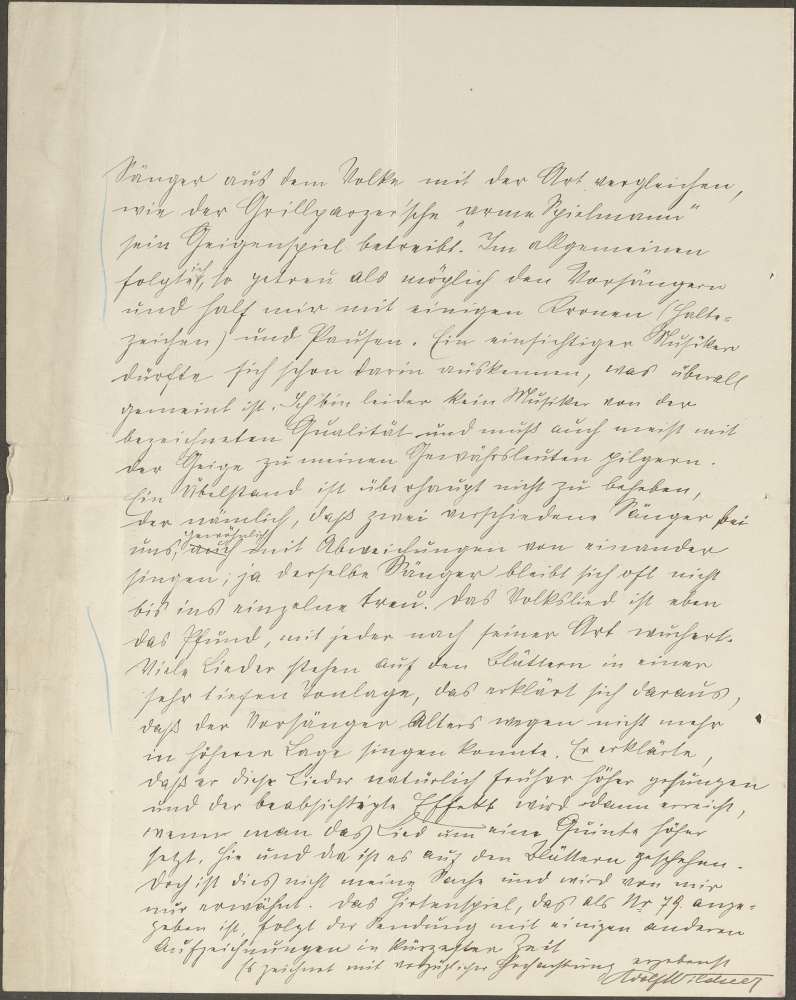 Sänger aus dem Volke mit der Art vergleichen,
wie der Grillparzer'sche "arme Spielmann"
sein Geigenspiel betreibt. Im allgemeinen
folgte ich, so getreu als möglich den Vorsängern
und half mir mit einigen Kronen (Halte-
zeichen) und Pausen. Ein einsichtiger Musiker
dürfte sich schon darin auskennen, was überall
gemeint ist. Ich bin leider kein Musiker von der
bezeichneten Qualität und muß auch meist mit
der Geige zu meinen Gewährsleuten pilgern.
Ein Übelstand ist überhaupt nicht zu beheben,
der nämlich, daß zwei verschiedene Sänger bei
uns, gewöhnlich auch mit Abweichungen von einander
singen; ja derselbe Sänger bleibt sich oft nicht
bis ins einzelne treu. Das Volkslied ist eben
das Pfund, mit jeder nach seiner Art wuchert.
Viele Lieder stehen auf den Blättern in einer
sehr tiefen Tonlage, das erklärt sich daraus,
daß der Vorsänger Alters wegen nicht mehr
in höherer Lage singen konnte. Er erklärte,
daß er diese Lieder natürlich früher höher gesungen
und der beabsichtigte Effekt wird dann erreicht,
wenn man das Lied um eine Quinte höher
setzt. Hie und da ist es auf den Blättern geschehen.
Doch ist dies nicht meine Sache und wird von mir
nur erwähnt. Das Hirtenspiel, das als Nr. 79. ange-
geben ist, folgt der Sendung mit einigen anderen
Aufzeichnungen in kürzester Zeit
Es zeichnet mit vorzüglicher Hochachtung ergebenst
Adolf